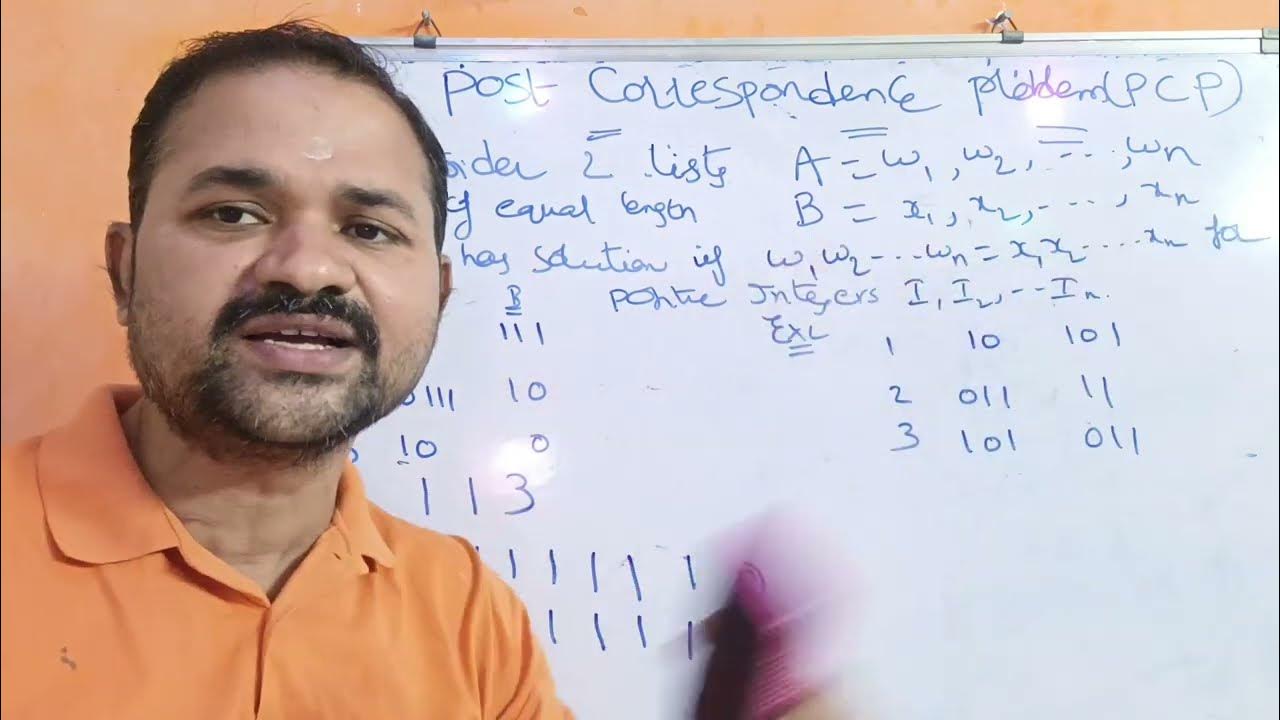 Post Correspondence problem(PCP)
sider 2 lists A = w1, w2, ..., wn
of equal length B = x1, x2, ..., xn
has solution if w1w2...wn = x1x2.....xn for
B positive Integers I1I2,..In.
111 Ex2 1 10 101
0111 10 2 011 11
10 0 3 101 011
1 1 3
1 1 1 1 1
1 1 1 1